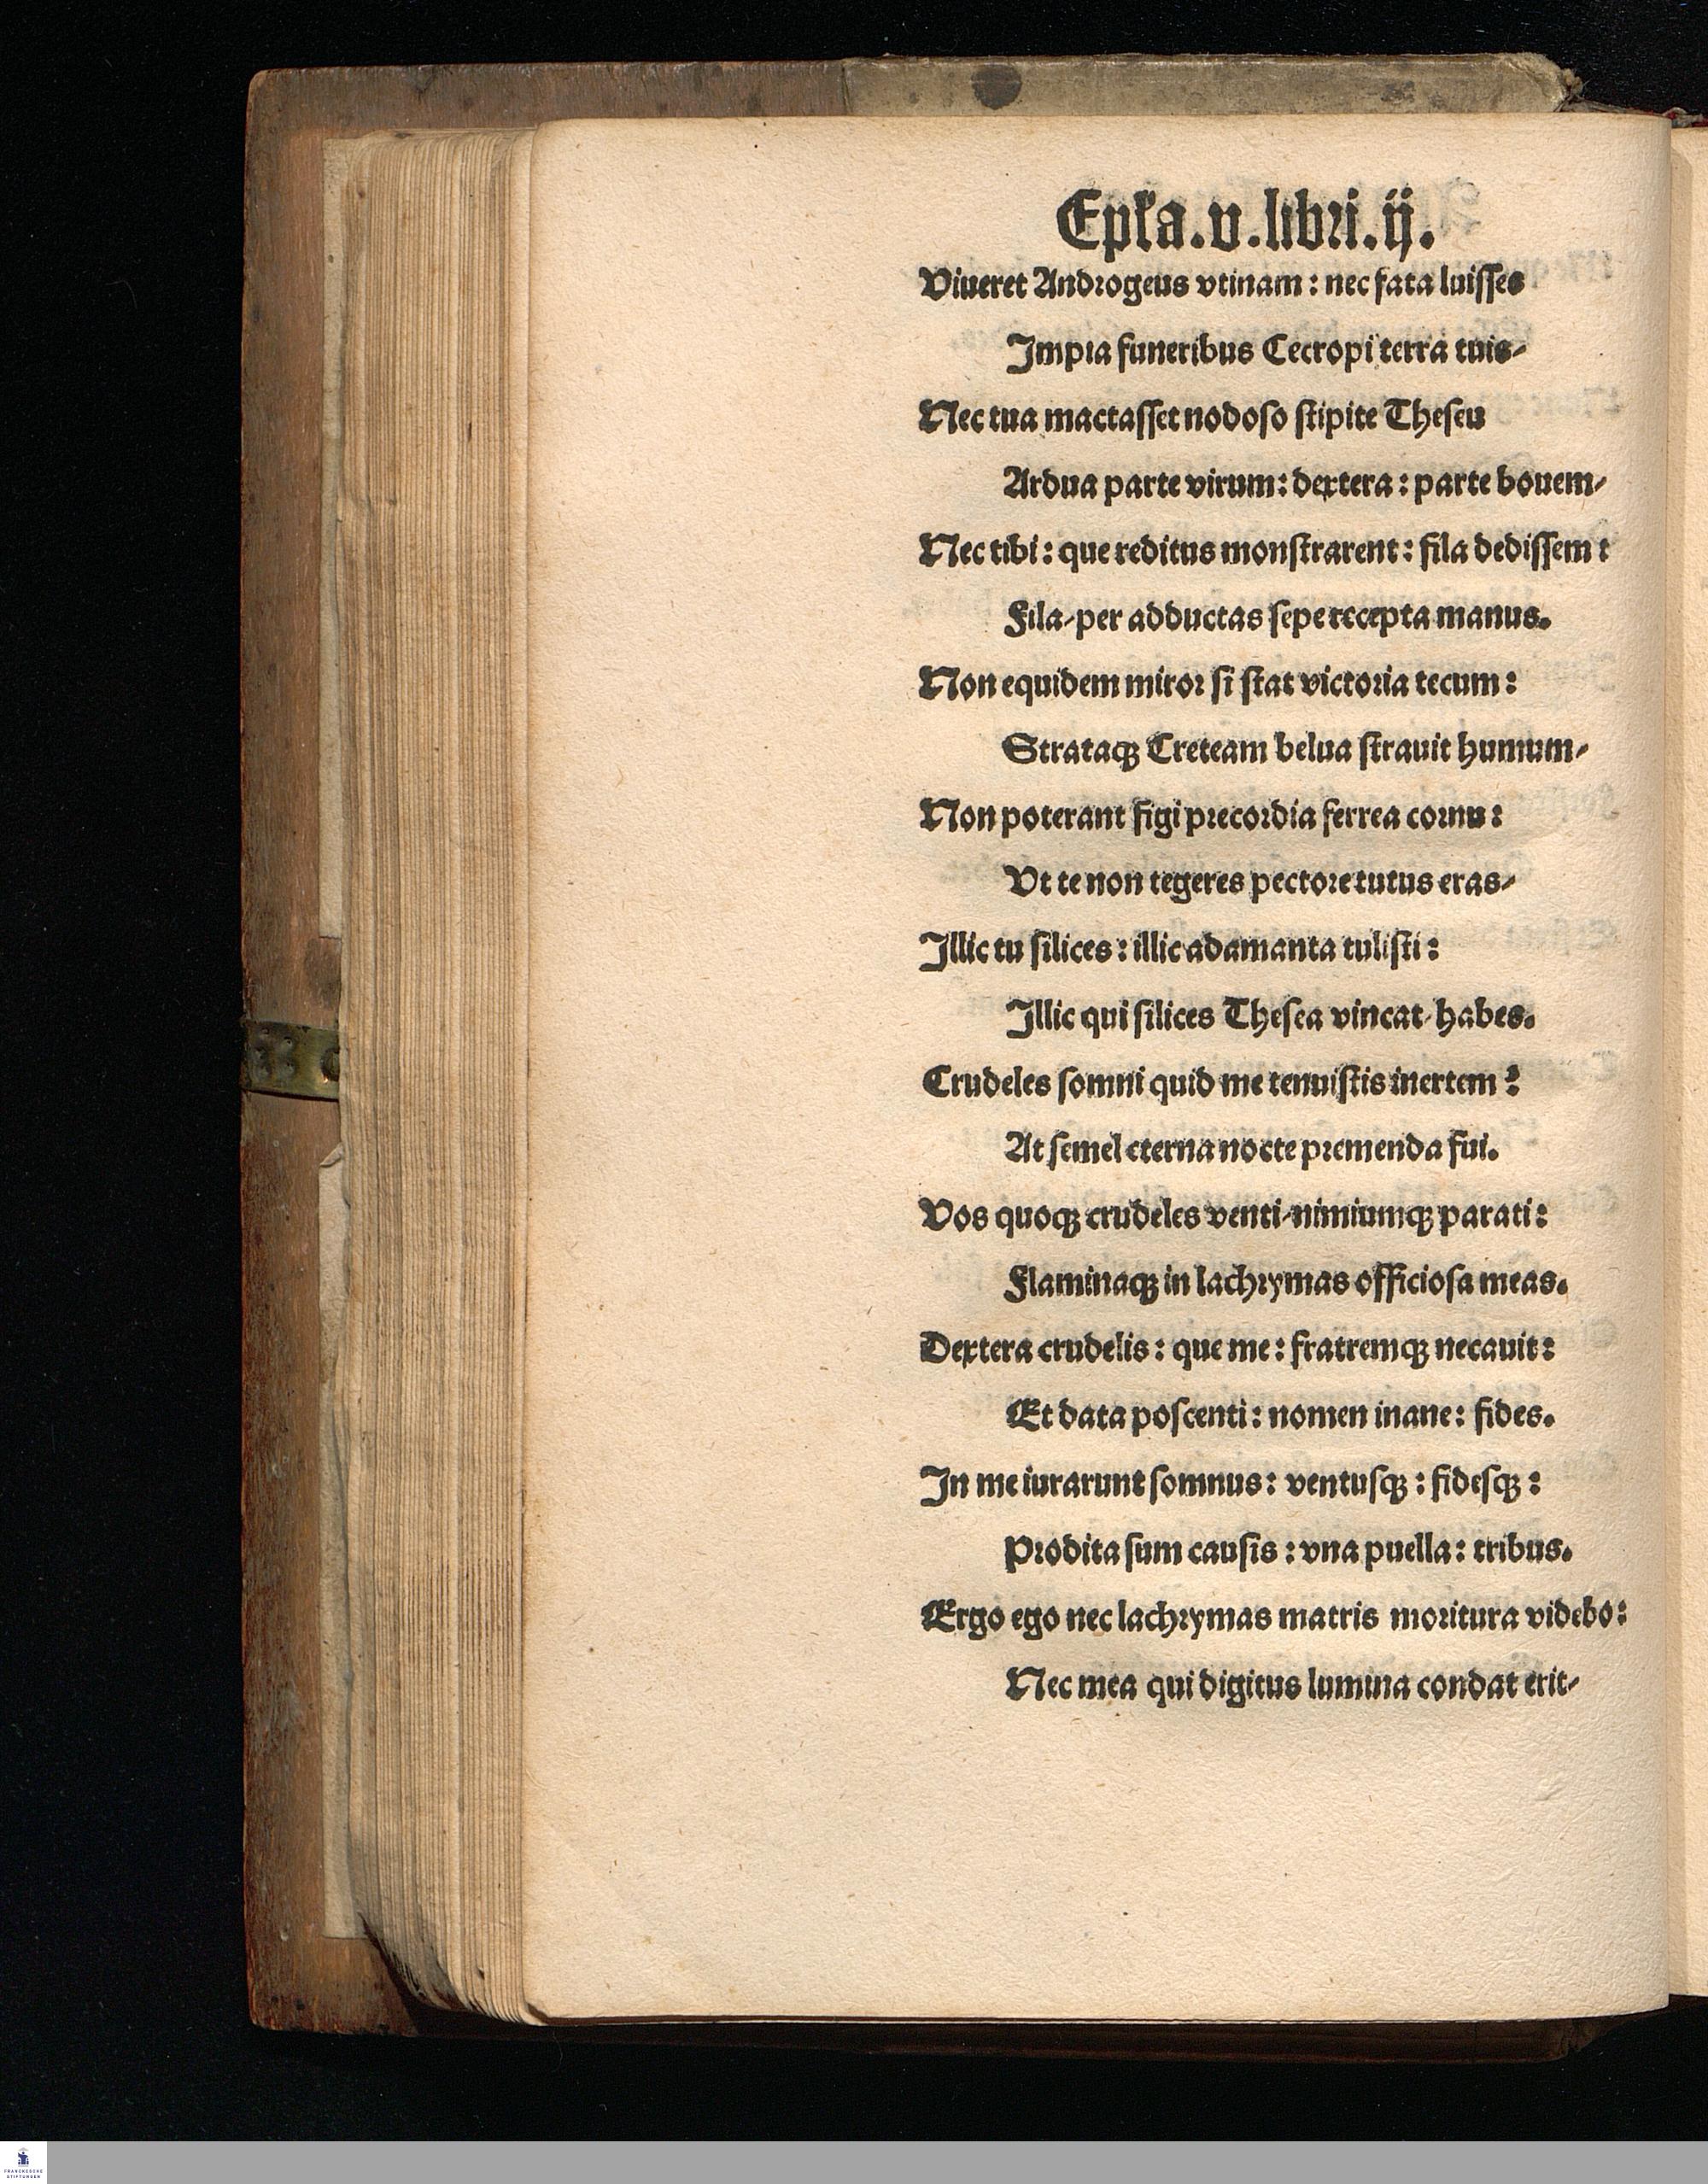 Epła.v.libri.ij.
Viueret Androgeus vtinam: nec fata luisses
Impia funeribus Cecropi terra tuis⸗
Nec tua mactasset nodoso stipite Theseu
Ardua parte virum: dextera: parte bouem⸗
Nec tibi: que reditus monstrarent: fila dedissem:
Fila⸗per adductas sepe recepta manus.
Non equidem miror si stat victoria tecum:
Strataqꝫ Creteam belua strauit humum⸗
Non poterant figi precordia ferrea cornu:
Vt te non tegeres pectore tutus eras⸗
Illic tu silices: illic adamanta tulisti:
Illic qui silices Thesea vincat⸗habes.
Crudeles somni quid me tenuistis inertem?
At semel eterna nocte premenda fui.
Vos quoqꝫ crudeles venti⸗nimiumqꝫ parati:
Flaminaqꝫ in lachrymas officiosa meas.
Dextera crudelis: que me: fratremqꝫ necauit:
Et data poscenti: nomen inane: fides.
In me iurarunt somnus: ventusqꝫ: fidesqꝫ:
Prodita sum causis: vna puella: tribus.
Ergo ego nec lachrymas matris moritura videbo:
Nec mea qui digitus lumina condat erit⸗
FRANCKESCHE
STIFTUNGEN